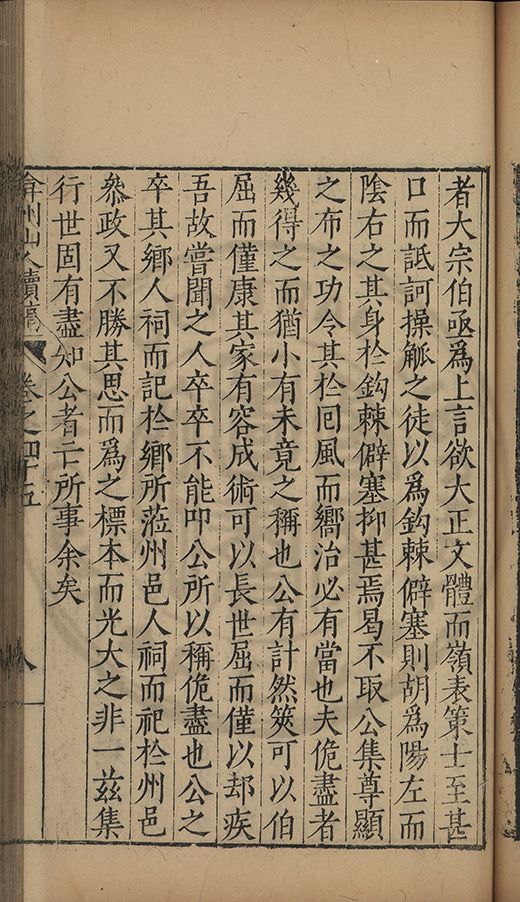 者大宗伯亟爲上言欲大正文體而嶺表策士至甚
口而詆訶操觚之徒以爲鈎棘僻塞則胡爲陽左而
陰右之其身於鈎棘僻塞抑甚焉曷不取公集尊顯
之布之功令其於回風而嚮治必有當也夫佹盡者
幾得之而猶小有未竟之稱也公有計然筴可以伯
屈而僅康其家有容成術可以長世屈而僅以却疾
吾故嘗聞之人卒卒不能叩公所以稱佹盡也公之
卒其鄉人祠而記於鄉所蒞州邑人祠而祀於州邑
叅政又不勝其思而爲之標本而光大之非一茲集
行世固有盡知公者亡所事余矣
弇州山人續藁 卷之四十五 八